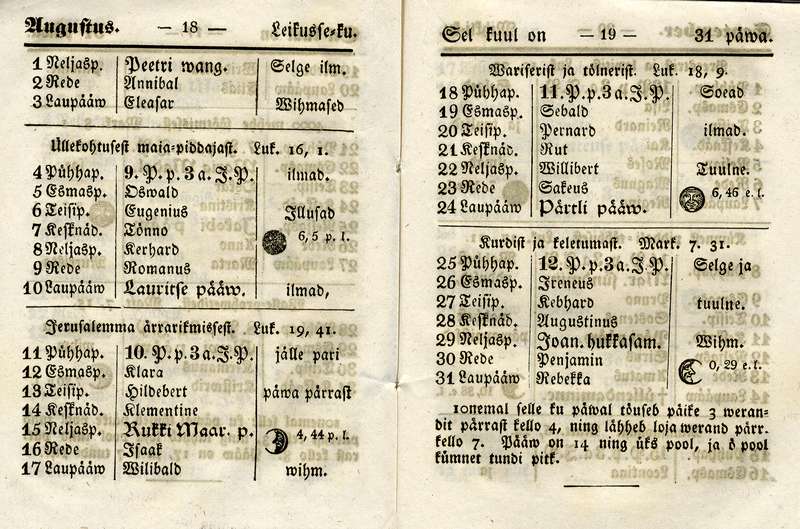 Augustus. — 18 — Leikusse-ku.
1 Neljasp. Peetri wang. Selge ilm.
2 Rede Annibal
3 Laupääw Eleasar Wihmased
Üllekohtusest maia-piddajast. Luk. 16, 1.
4 Pühhap. 9. P. p. 3 a. J. P. ilmad.
5 Esmasp. Oswald
6 Teisip. Eugenius Jllusad
7 Kesknäd. Tönno 6, 5 p. l.
8 Neljasp. Kerhard
9 Rede Romanus
10 Laupääw Lauritse pääw. ilmad,
Jerusalemma ärrarikmissest. Luk. 19, 41.
11 Pühhap. 10. P. p. 3 a. J. P. jälle pari
12 Esmasp. Klara
13 Teisip. Hildebert päwa pärrast
14 Kesknäd. Klementine
15 Neljasp. Rukki Maar. p. 4, 44 p. l.
16 Rede Isaak
17 Laupääw Wilibald wihm.
Sel kuul on — 19 — 31 päwa.
Wariserist ja tölnerist. Luk. 18, 9.
18 Pühhap. 11. P. p. 3 a. J. P. Soead
19 Esmasp. Sebald
20 Teisip. Pernard ilmad.
21 Kesknäd. Rut
22 Neljasp. Willibert Tuulne.
23 Rede Sakeus 6, 46 e. l.
24 Laupääw Pärtli pääw.
Kurdist ja keletumast. Mark. 7. 31.
25 Pühhap. 12. P. p. 3 a. J. P. Selge ja
26 Esmasp. Jreneus
27 Teisip. Kebhard tuulne.
28 Kesknäd. Augustinus
29 Neljasp. Joan. hukkasam. Wihm.
30 Rede Penjamin 0, 29 e. l.
31 Laupääw Rebekka
1onemal selle ku päwal töuseb päike 3 weran-
dit pärrast kello 4, ning lähheb loja werand pärr.
kello 7. Pääw on 14 ning üks pool, ja ö pool
kümnet tundi pitk.